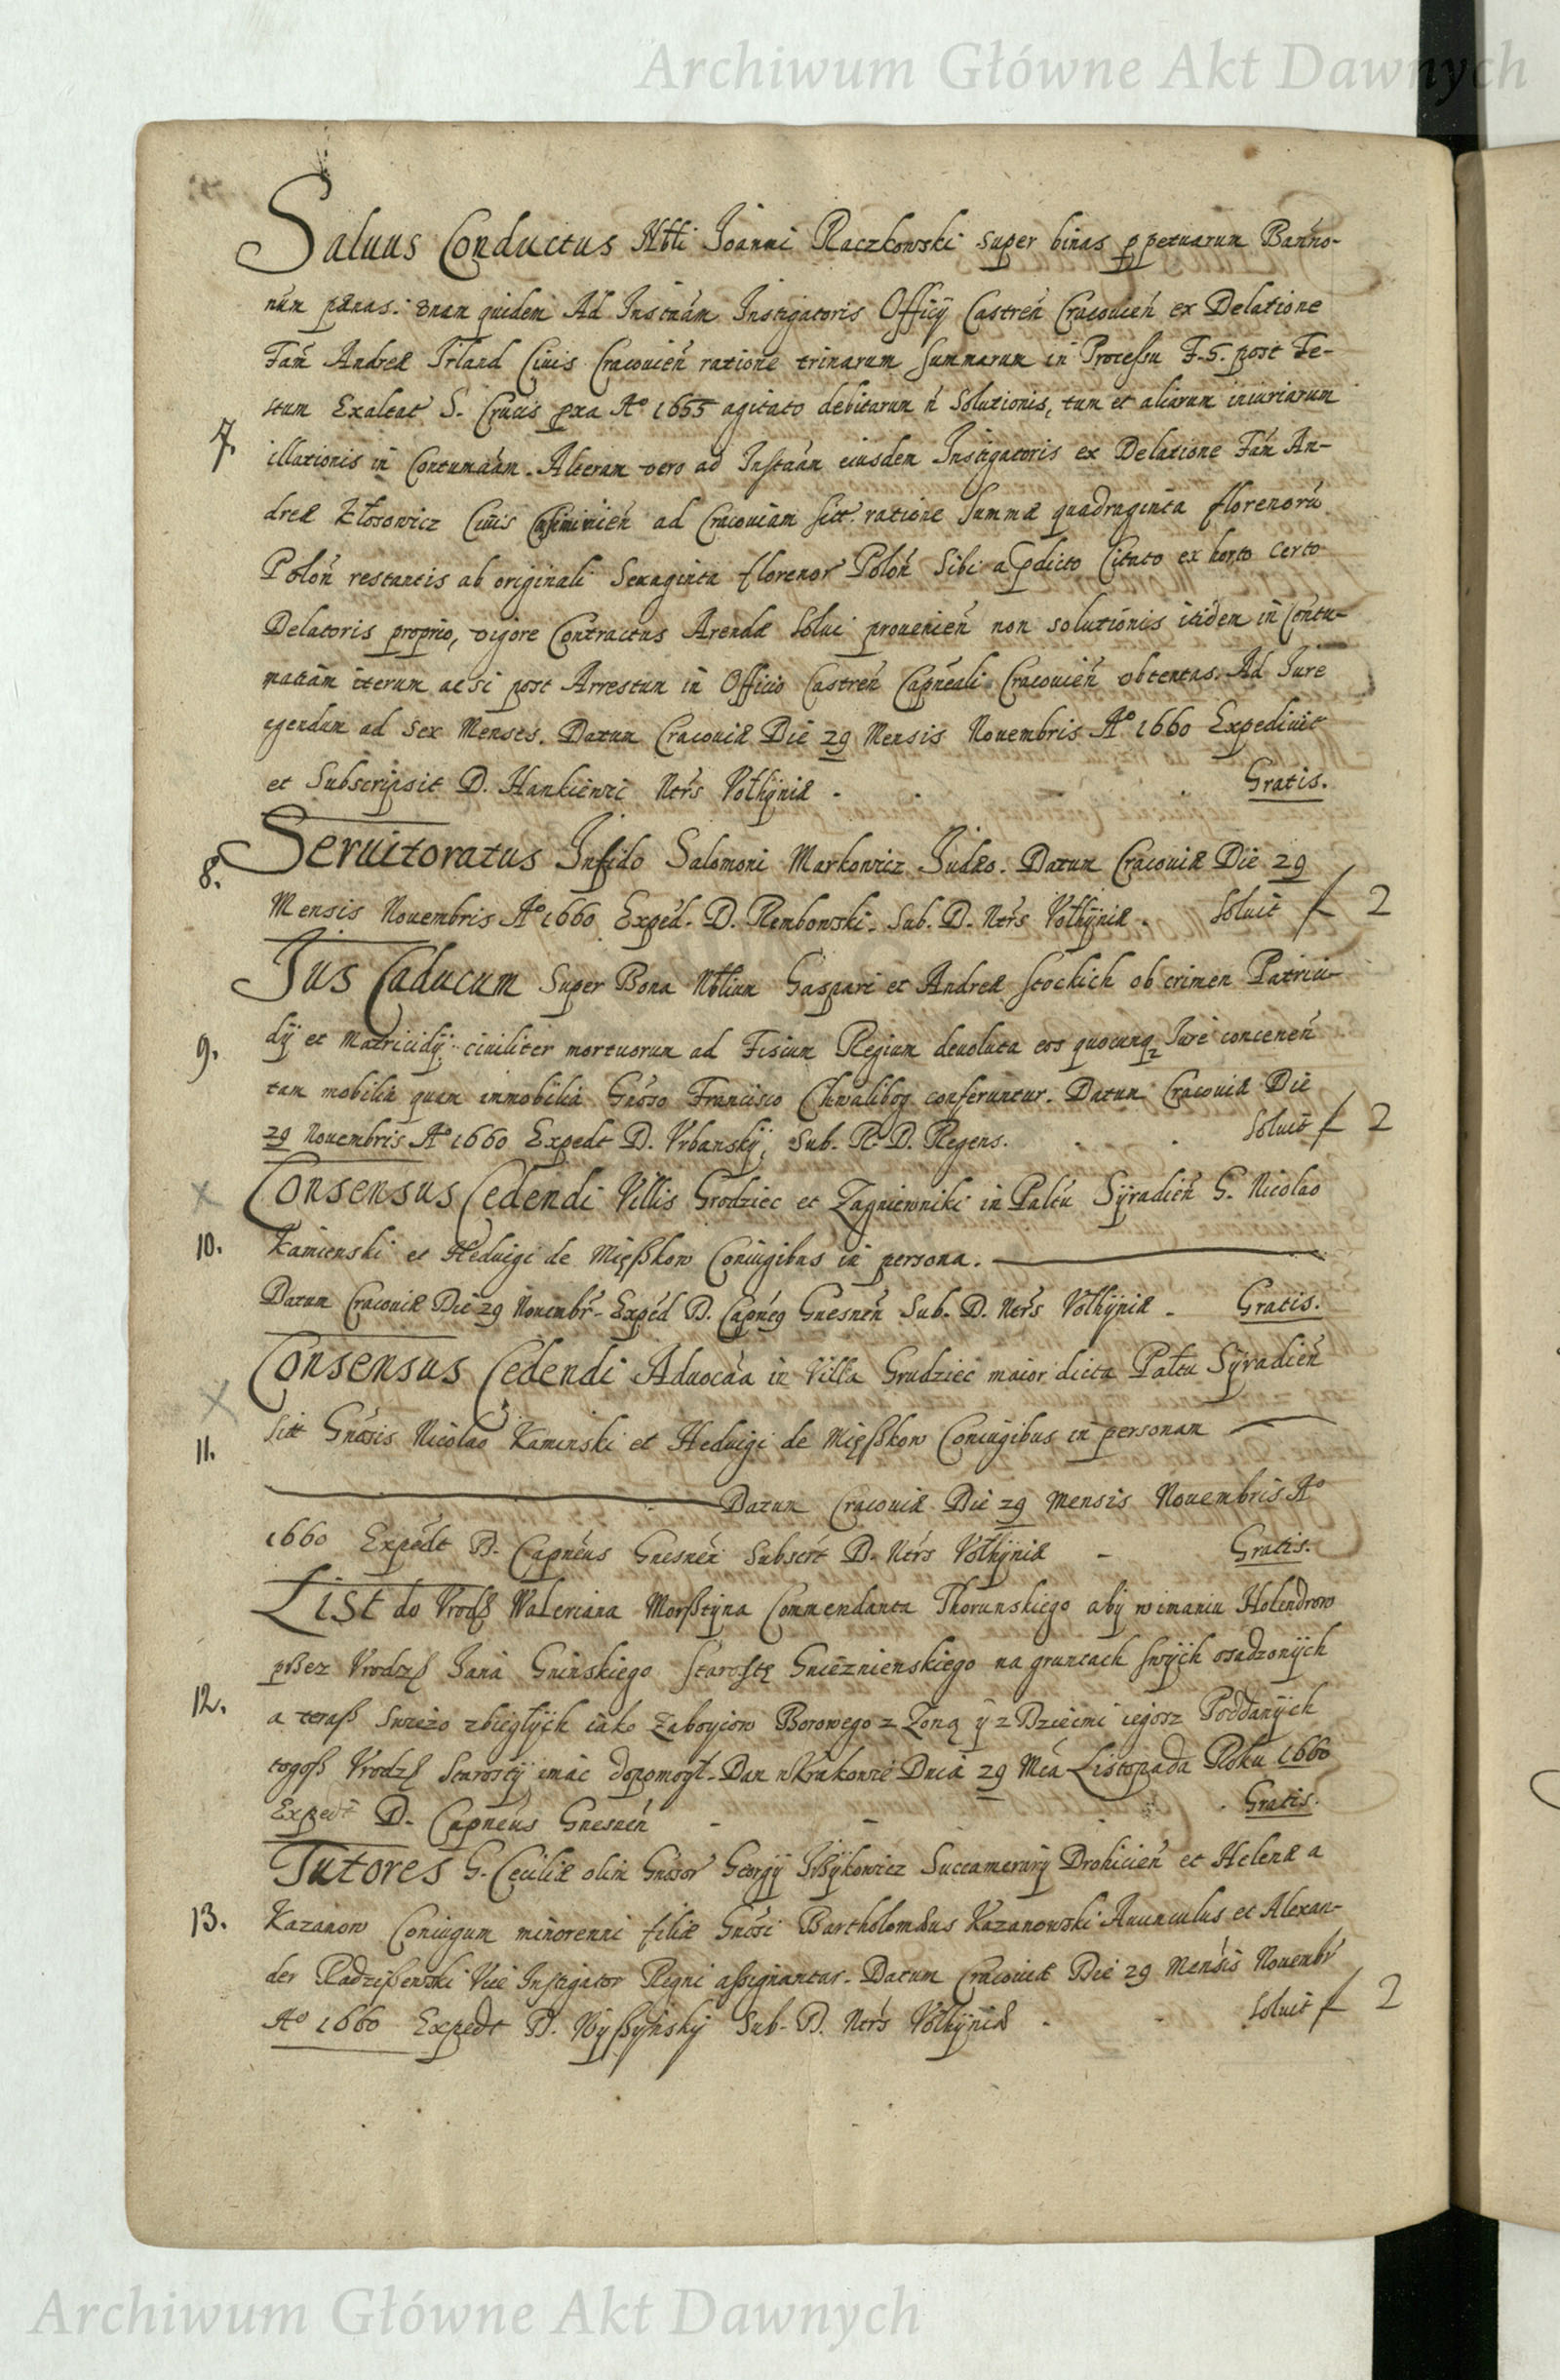 Archiwum Główne Akt Dawnych
Saluus Conductus Nbli Joanni Raczkowski super binas ppetuarum Banno-
num pænas. vnam quidem Ad Instnám Instigatoris Officij Castren̄ Cracouien̄ ex Delatione
Fam̄ Andreæ Irland Ciuis Cracouien̄ ratione trinarum summarum in Processu F. 5. post Fe-
stum Exaltat S. Crucis pxa Aº 1655 agitato debitarum n̄ solutionis, tum et aliarum iniuriarum
7.
illationis in Contumáām. Alteram vero ad Instáām eiusdem Instigatoris ex Delatione Fam̄ An-
dreæ Złosowicz Ciuis ad Cracouiam sitt. ratione summæ quadraginta florenorū
Polon̄ restantis ab originali Sexaginta florenor Polon̄ sibi a pdicto Citato ex horto certo
Delatoris proprio, vigore Contractus Arendæ solui prouenien̄ non solutionis itidem in Contu-
matiam iterum acsi post Arrestum in Officio Castren̄ Capn̄eali Cracouien̄ obtentas. Ad Jure
agendum ad sex Menses. Datum Cracouiæ Die 29 Mensis Nouembris Aº 1660 Expediuit
et Subscripsit D. Hankiewic Nērs Vołhÿniæ . . . Gratis.
8. Seruitoratus Infido Salomoni Markowicz Judæo. Datum Cracouiæ Die 29
Mensis Nouembris Aº 1660 Exped. D. Rembowski. Sub. D. Nērs Vołhÿniæ. Soluit f 2
Jus Caducum Super Bona Nblium Gaspari et Andreæ Stockich ob crimen Patrici-
9. dij et Matricidij ciuiliter mortuorum ad Fiscum Regium deuoluta eos quocunq Jure concenen̄
tam mobilia quam immobilia Gnoso Francisco Chwalibog conferuntur. Datum Cracouiæ Die
29 Nouembris Aº 1660 Expedt D. Vrbanskÿ, Sub. R. D. Regens. . . Soluit f 2
Consensus Cedendi Villis Grodziec et Zagniewniki in Paltu Sÿradien̄ G. Nicolao
10. Kamienski et Heduigi de Mięßkow Coniugibus in persona.
Datum Cracouiæ Die 29 Nouembr- Exped D. Capn̄eg Gnesnen̄ Sub. D. Nērs Vołhÿniæ - Gratis.
Consensus Cedendi Aduocaā in Villa Grudziec maior dicta Paltu Sÿradien̄
11. sitt Gnosis Nicolao Kaminski et Heduigi de Mięßkow Coniugibus in personam
Datum Cracouiæ Die 29 Mensis Nouembris Aº
1660 Expedt D. Capn̄eus Gnesnen̄ Subscrt D. Nērs Vołhÿniæ - Gratis.
List do Vrodz Waleriana Morßtÿna Commendanta Thorunskiego abÿ w imaniu Holendrow
pßez Vrodz Jana Gninskiego Starostę Gnieznienskiego na gruntach swÿch osadzonÿch
12. a teraß swiezo zbiegłÿch iako Zaboyciow Borowego z Zoną ÿ z Dziećmi iegosz Poddanÿch
togoß Vrodz Starostÿ imac dopomogł. Dan w Krakowie Dnia 29 Mca Listopada Roku 1660
Expedt D. Capn̄eus Gnesnen̄ - - . Gratis.
Tutores G. Ceciliæ olim Gnosor Georgij Succamerarij Drohicien̄ et Helenæ a
13. Kazanow Coniugum minorenni filiæ Gnosi Bartholomæus Kazanowski Auunculus et Alexan-
der Radzißewski Vice Instigator Regni assignantur. Datum Cracouiæ Die 29 Mensis Nouembr
Aº 1660 Expedt D. Wÿßÿnskÿ Sub. D. Nērs Vołhÿniæ . . Soluit f 2
Archiwum Główne Akt Dawnych